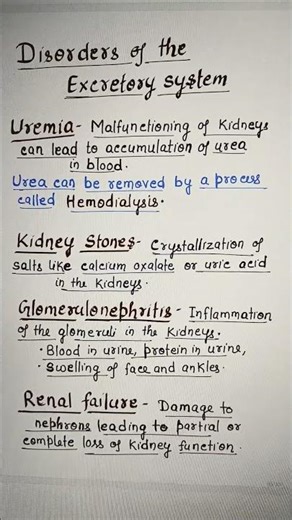 Disorders of the
Excretory system
Uremia- Malfunctioning of Kidneys
can lead to accumulation of urea
in blood.
Urea can be removed by a process
called Hemodialysis.
Kidney Stones- Crystallization of
salts like calcium oxalate or uric acid
in the kidneys.
Glomerulonephritis - Inflammation
of the glomeruli in the kidneys.
• Blood in urine, protein in urine,
• Swelling of face and ankles.
Renal failure - Damage to
nephrons leading to partial or
complete loss of kidney function.